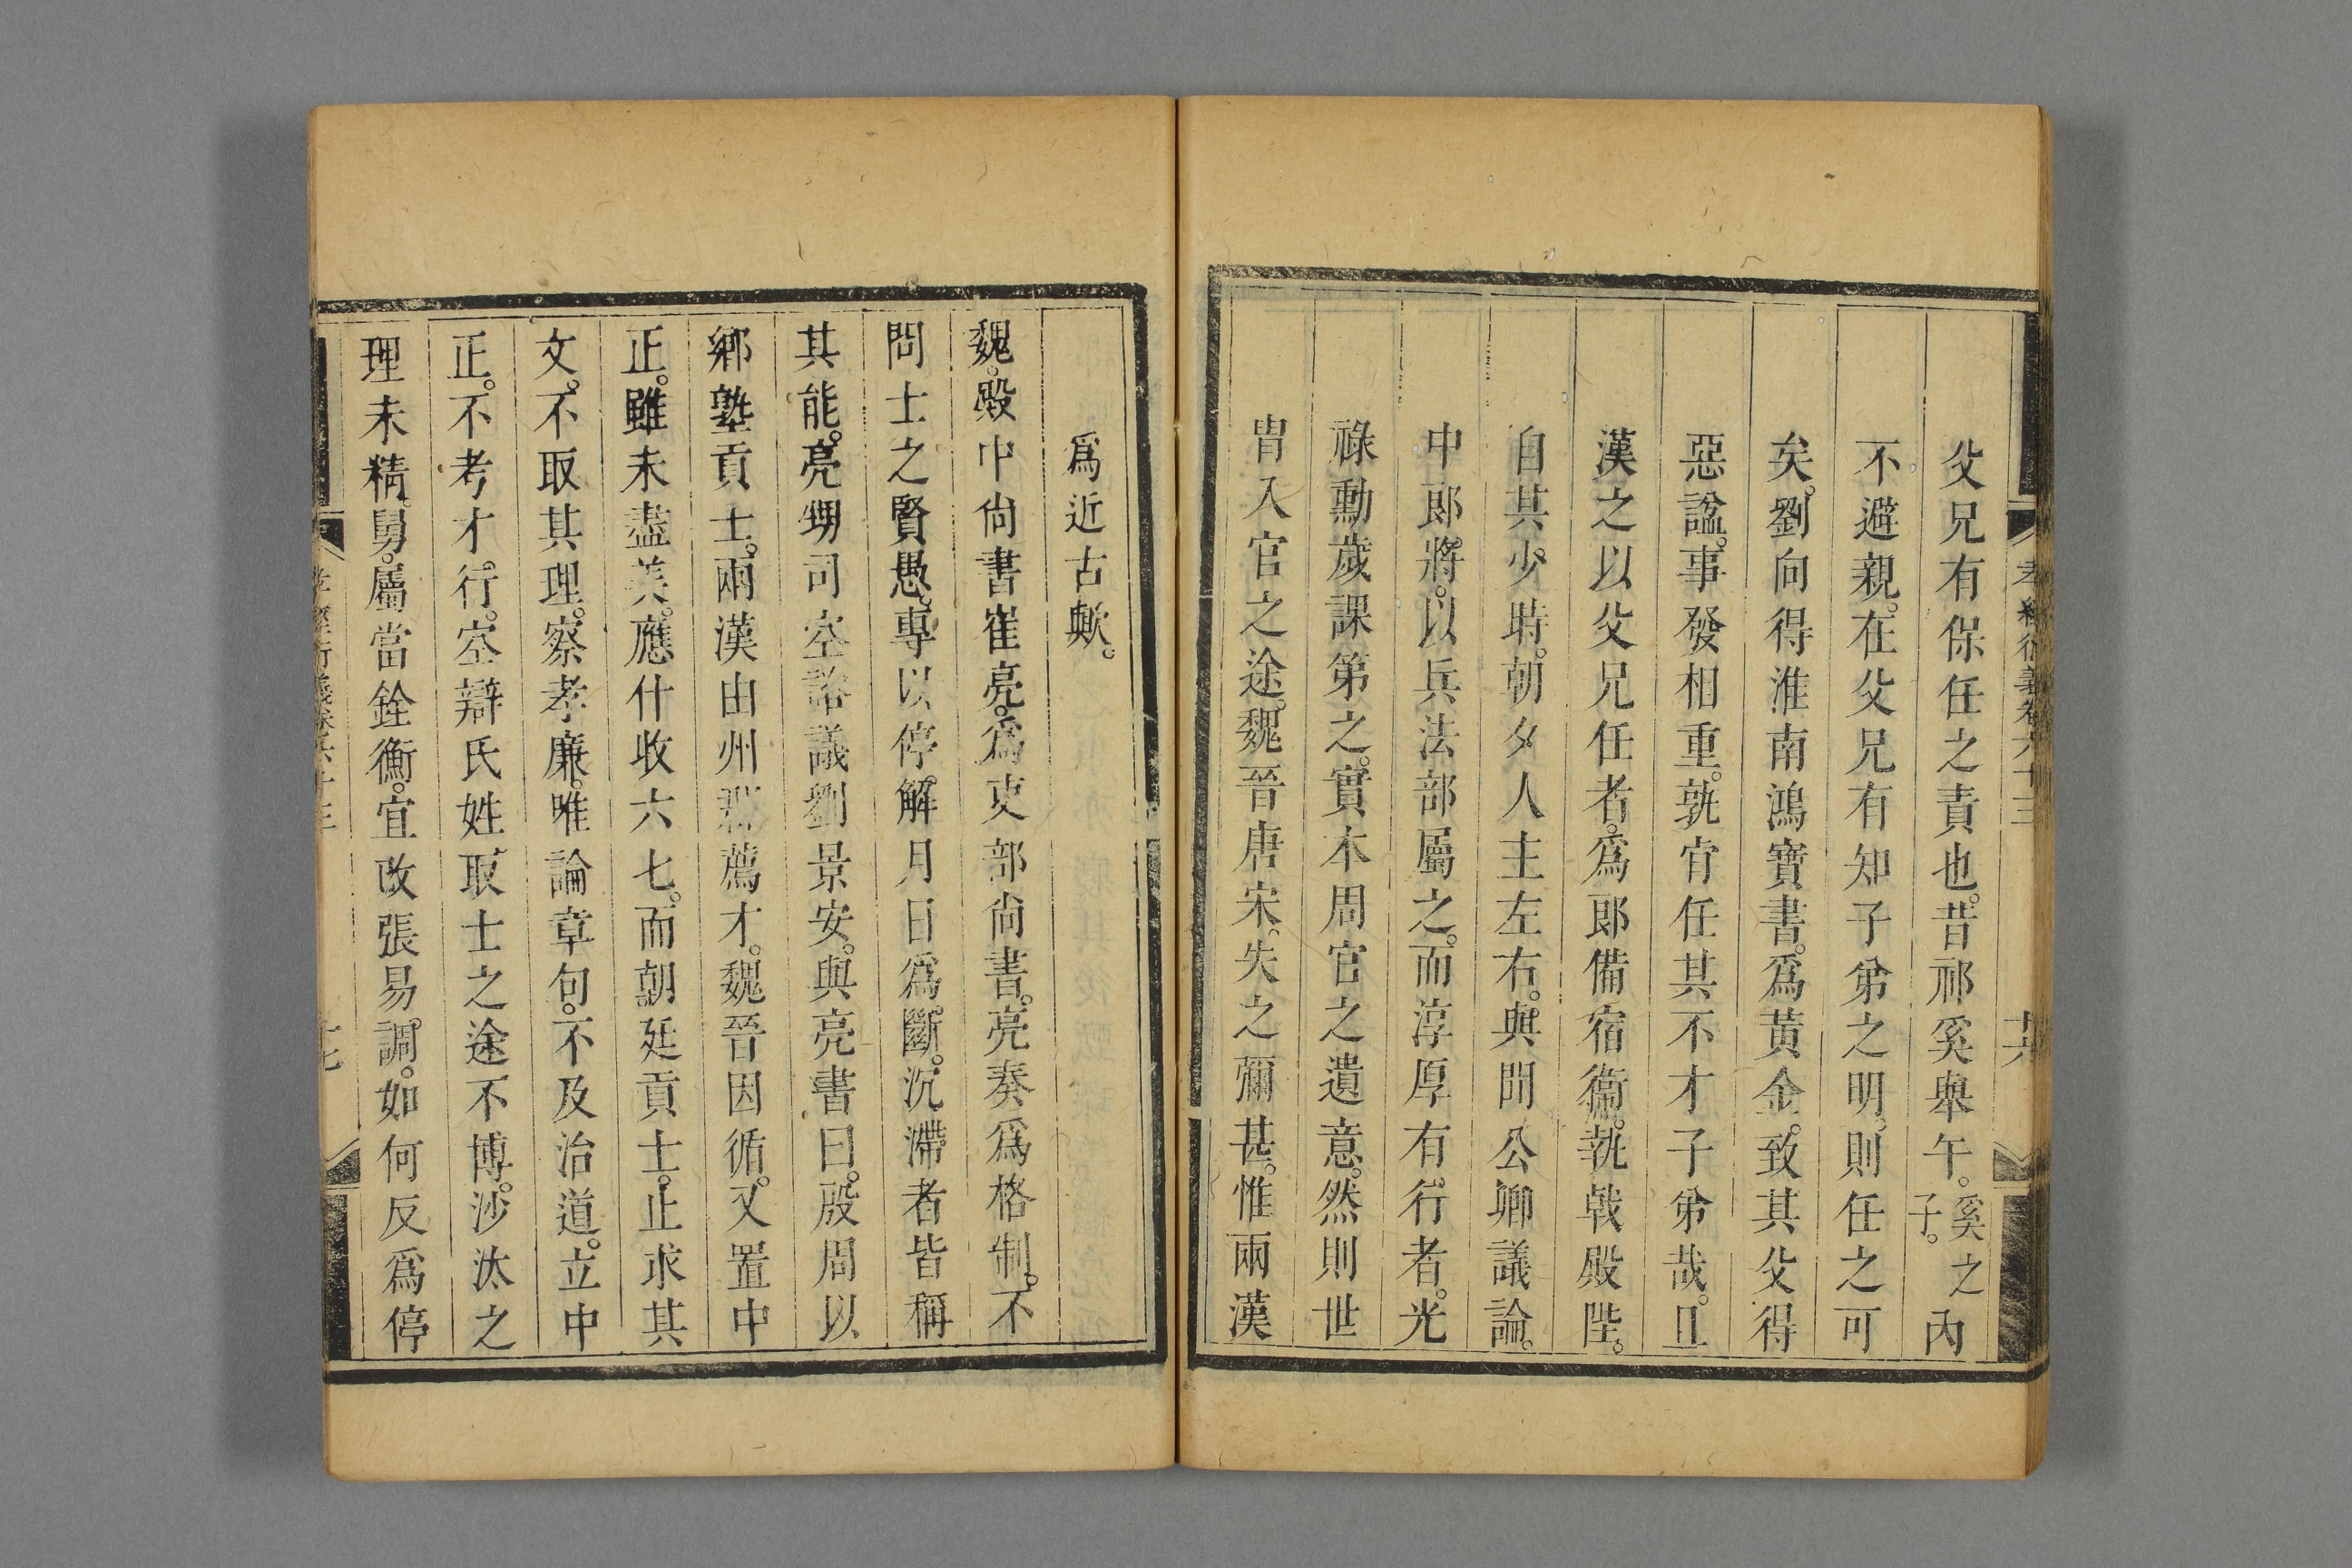 孝經衍義卷六十三
十六
父兄有保任之責也。昔祁奚舉午。奚之子。內
不避親。在父兄有知子弟之明。則任之可
矣。劉向得淮南鴻寶書。爲黃金。致其父得
惡諡。事發相重。孰肯任其不才子弟哉。且
漢之以父兄任者。爲郎備宿衞。執戟殿陛。
自其少時。朝夕人主左右。與聞公卿議論。
中郎將。以兵法部屬之。而淳厚有行者。光
祿勳歲課第之。實本周官之遺意。然則世
胄入官之途。魏晉唐宋。失之彌甚。惟兩漢
爲近古歟。
魏。殿中尙書崔亮。爲吏部尙書。亮奏爲格制。不
問士之賢愚。專以停。解月日爲。斷。沉滯者皆稱
其能。亮甥司空諮議劉景安。與亮書曰。殷周以
鄉塾貢士。兩漢由州郡薦才。魏晉因循。又置中
正。雖未盡美。應什收六七。而朝廷貢士。止求其
文。不取其理。察孝廉。唯論章句。不及治道。立中
正。不考才。行。空辯氏姓。取士之途不博。沙汰之
理未精。舅。屬當銓衡。宜改張易。調。如何反爲停
孝經衍義卷六十三
十七